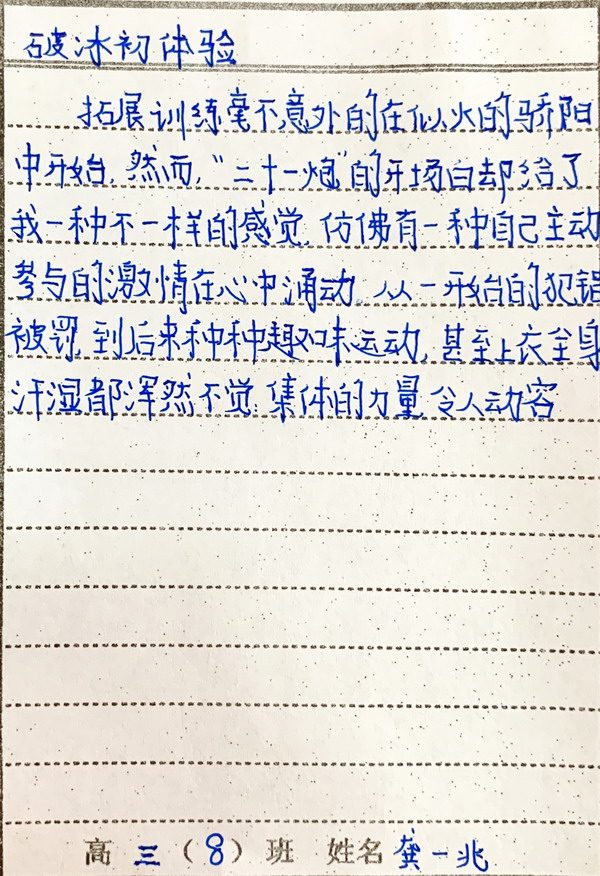 破冰初体验
拓展训练毫不意外的在似火的骄阳
中开始.然而,“二十一炮”的开场白却给了
我一种不一样的感觉.仿佛有一种自己主动
参与的激情在心中涌动.从一开始的犯错
被罚,到后来种种趣味运动,甚至上衣全身
汗湿都浑然不觉.集体的力量,令人动容
高三(8)班 姓名龚一兆